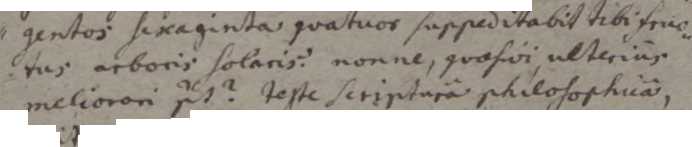 gentos sexaginta quatuor suppeditabit tibi fruc-
tus arboris solaris. nonne, quæsivi, ulterius
meliorari p̄t? teste scripturâ philosophicâ,